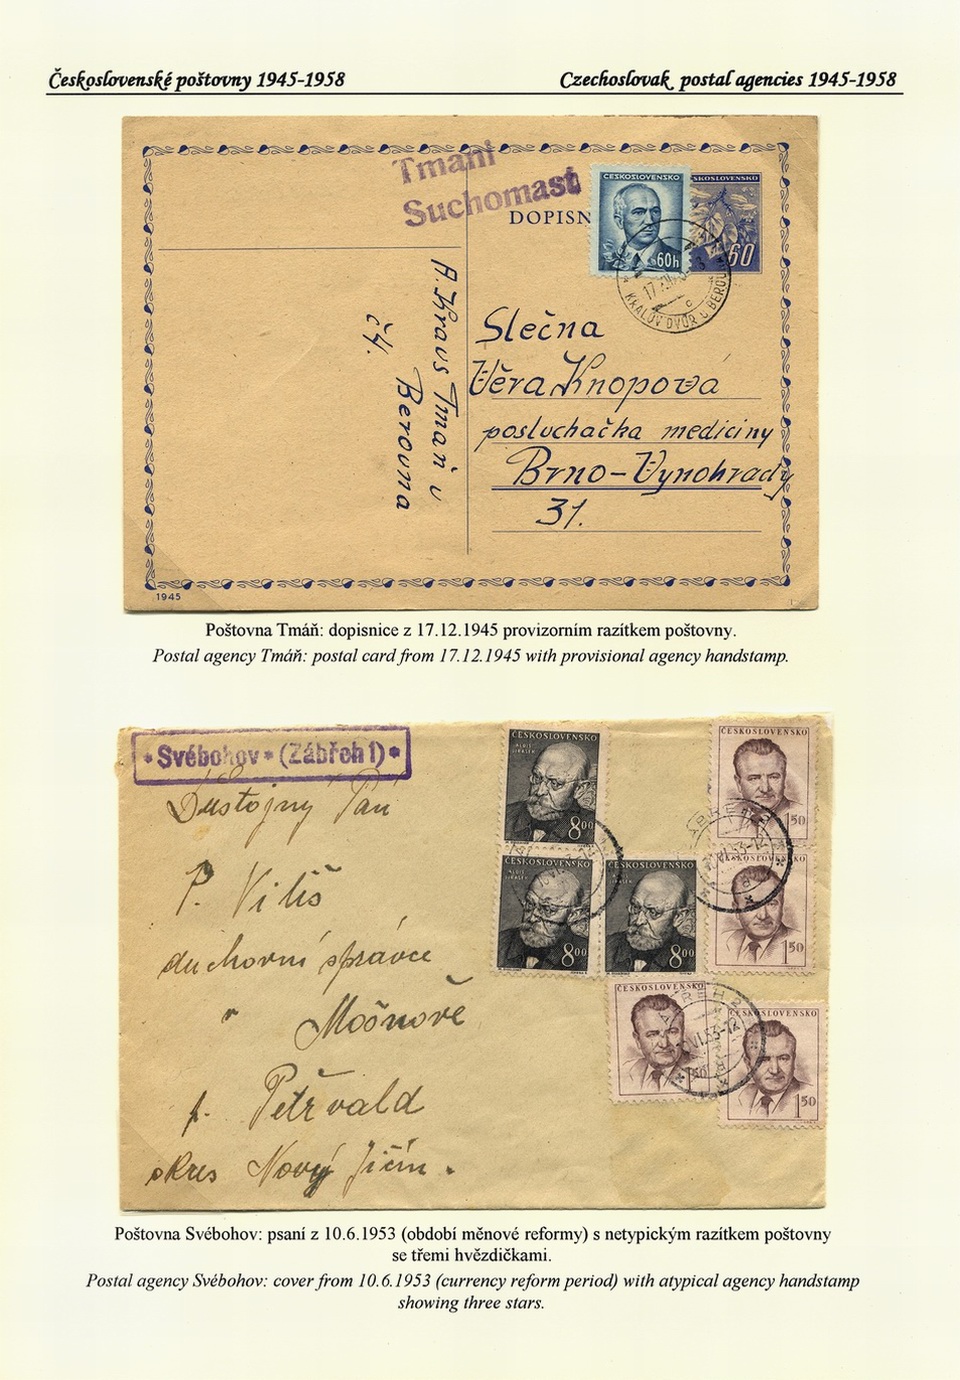 Československé poštovny 1945-1958
Czechoslovak postal agencies 1945-1958
Tmani
Suchomast
DOPISN
ČESKOSLOVENSKO
60h
60
KRÁLŮV DVŮR U BEROU
Slečna
Věra Knopová
posluchačka medicíny
Brno-Vynohrady
31.
A. Kraus Tmaň u
Berouna
č4.
1945
Poštovna Tmáň: dopisnice z 17.12.1945 provizorním razítkem poštovny.
Postal agency Tmáň: postal card from 17.12.1945 with provisional agency handstamp.
* Svébohov * (Zábřeh 1) *
ČESKOSLOVENSKO
ALOIS
JIRÁSEK
8 00
ČESKOSLOVENSKO
1 50
ALOIS
JIRÁSEK
8 00
ALOIS
JIRÁSEK
8 00
1 50
ČESKOSLOVENSKO
1 50
ČESKOSLOVENSKO
1 50
Důstojný Pán
P. Viliš
duchovní správce
v Mošnově
p. Petřvald
okres Nový Jičín.
Poštovna Svébohov: psaní z 10.6.1953 (období měnové reformy) s netypickým razítkem poštovny
se třemi hvězdičkami.
Postal agency Svébohov: cover from 10.6.1953 (currency reform period) with atypical agency handstamp
showing three stars.